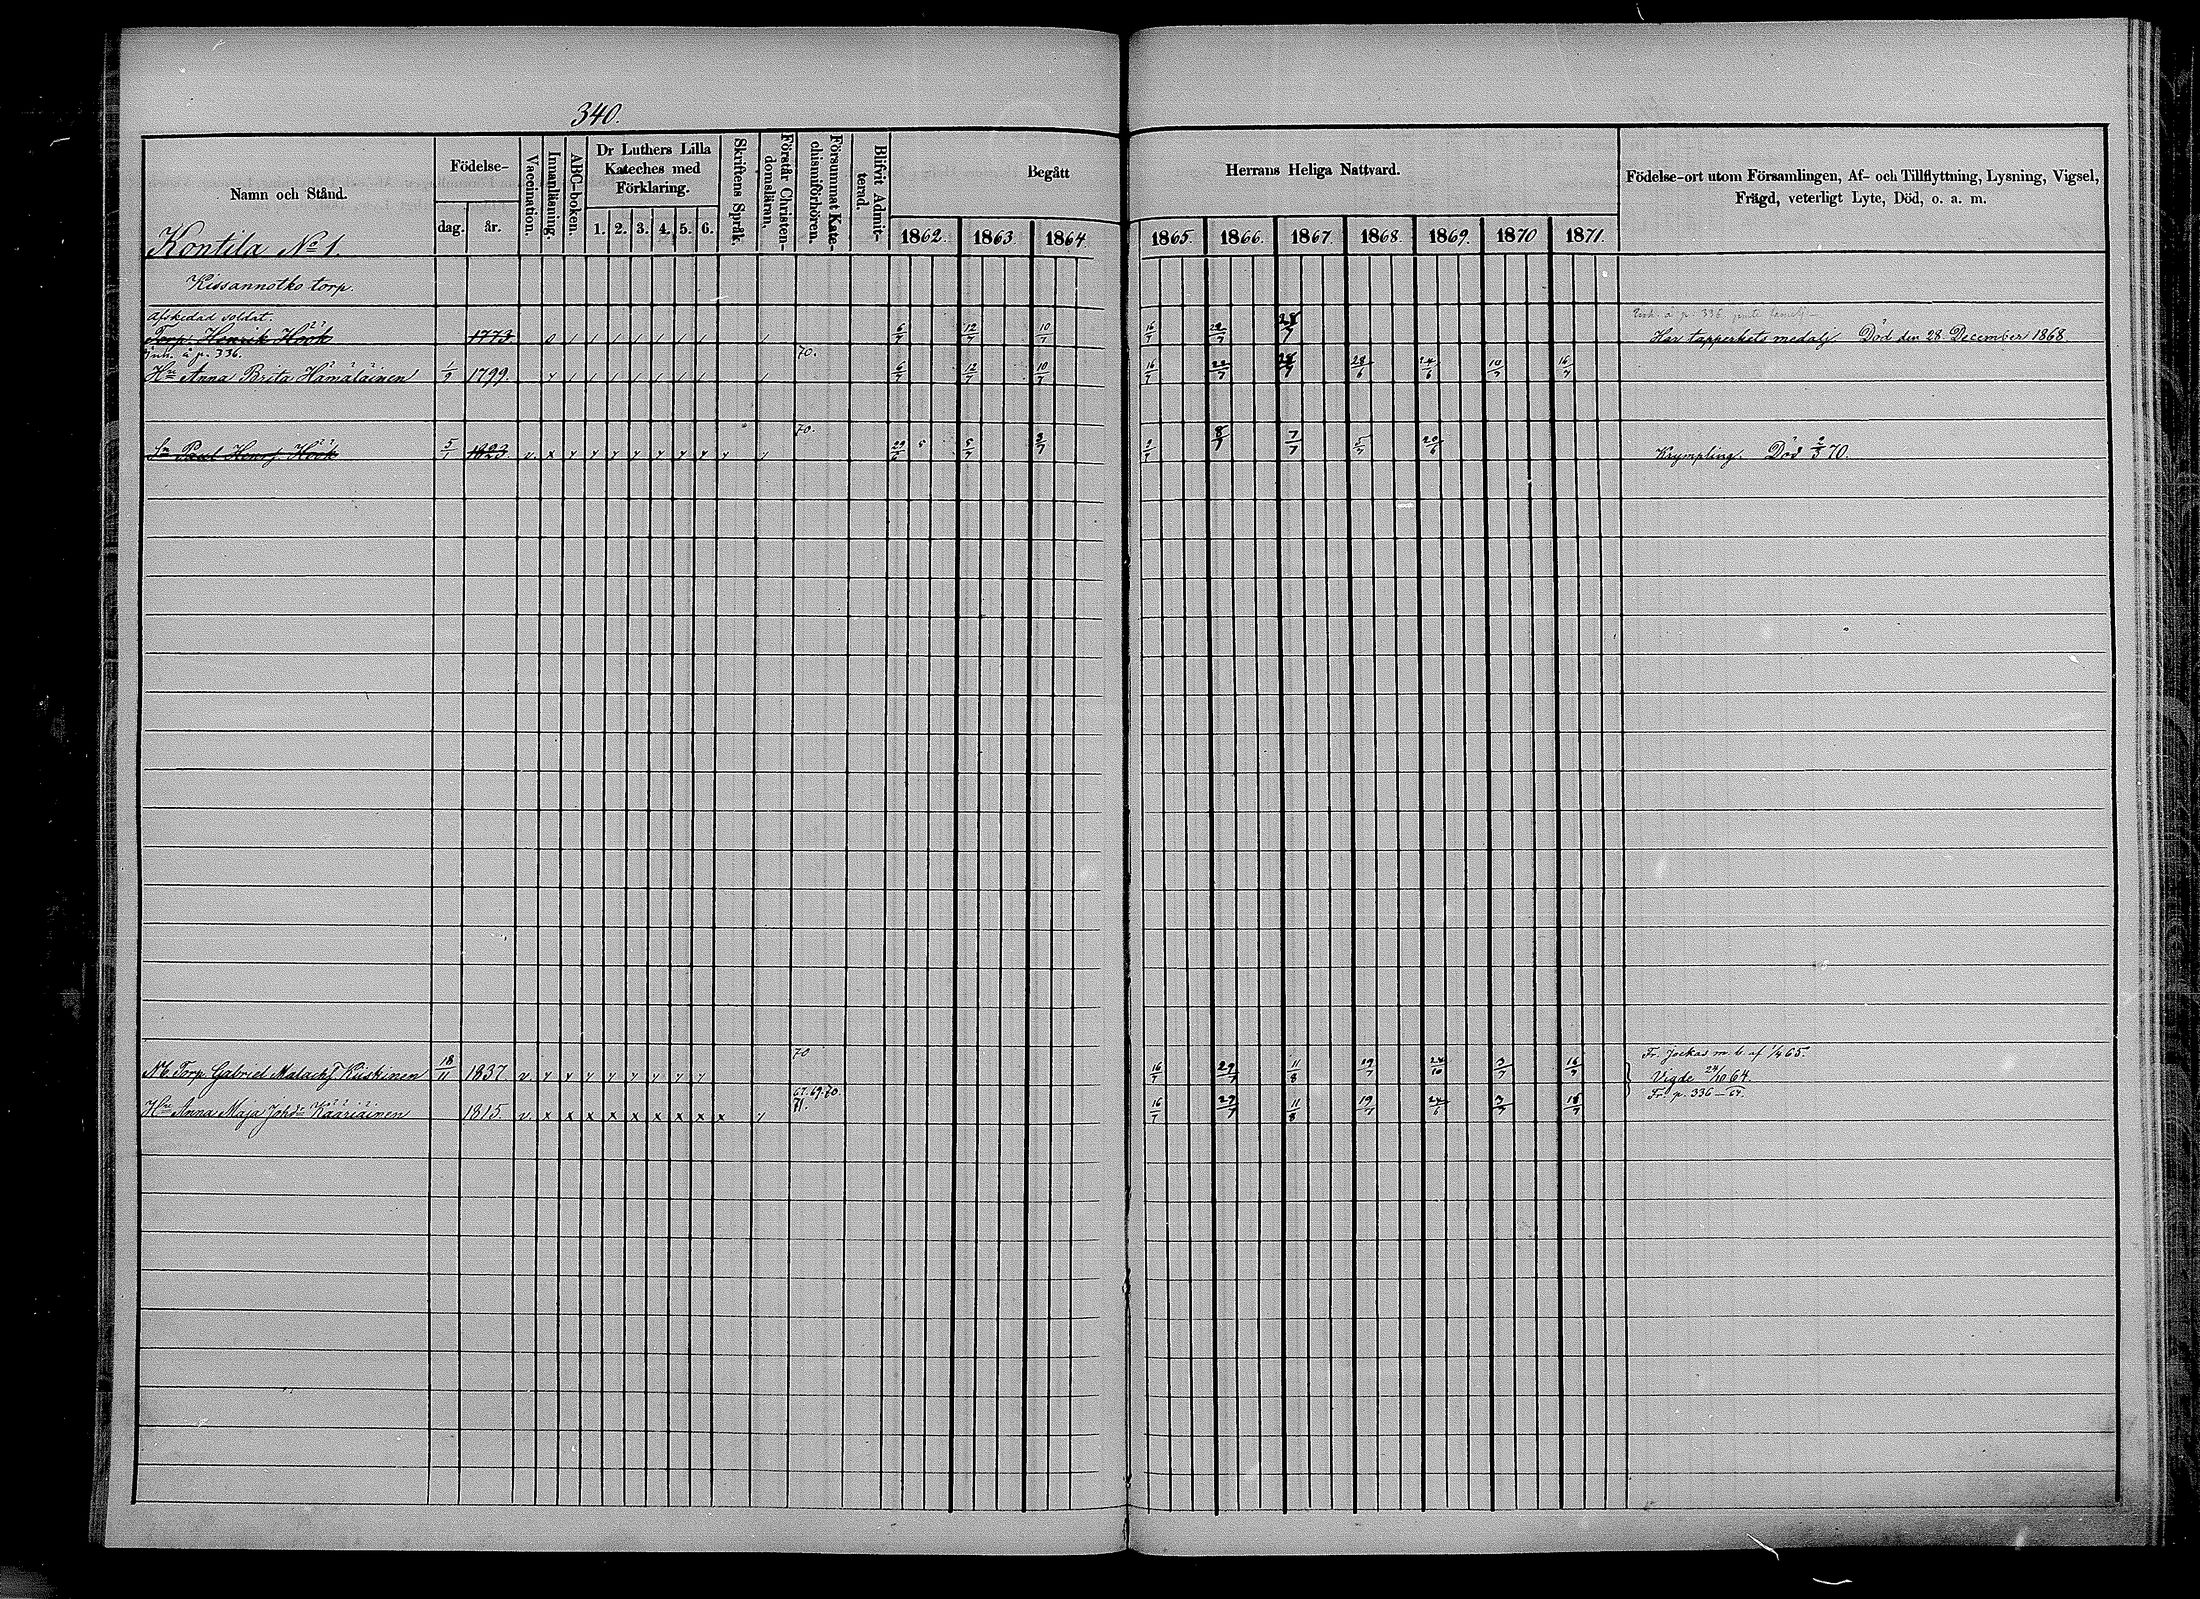 340.
Namn och Stånd.
Födelse-
dag. år.
Vaccination.
Innanläsning.
ABC-boken.
Dr Luthers Lilla
Kateches med
Förklaring.
1. 2. 3. 4. 5. 6.
Skriftens Språk.
Förstår Christen-
domsläran.
Försummat Kate-
chismiförhören.
Blifvit Admit-
terad.
Begått
Herrans Heliga Nattvard.
1862. 1863. 1864 1865. 1866. 1867. 1868. 1869. 1870 1871.
Födelse-ort utom Församlingen, Af- och Tillflyttning, Lysning, Vigsel,
Frägd, veterligt Lyte, Död, o. a. m.
Kontila No 1.
Kissannotko torp.
Afskedad soldat.
Torp. Henrik Höök 1773 0 / / / / / / / / 6/7 12/7 10/7 16/7 22/7 28/7 Har tapperhets medalj. Död den 28 December 1868
inh. å p. 336. 70.
Hu Anna Brita Hämäläinen 1/9 1799. y / / / / / / / / 6/7 12/7 10/7 16/7 22/7 28/7 28/6 24/6 10/7 16/7
70.
Sn Paul Henrs Höök 5/1 1823 v. x y y y y y y y y y 29/6 5 5/7 3/7 2/7 8/7 7/7 5/7 20/6 Krympling. Död 2/3 70.
70 Fr. Jockas m. b. af 1/4 65.
N6 Torp. Gabriel Malachs Kiiskinen 18/11 1837 v y y y y y y y y 16/7 29/7 11/8 19/7 24/10 3/7 16/7 Vigde 24/10 64.
67. 69. 70
71. Fr. p. 336 – 64.
Hu Anna Maja Johdr Kääriäinen 1815. v. x x x x x x x x x y 16/7 29/7 11/8 19/7 24/6 3/7 18/7